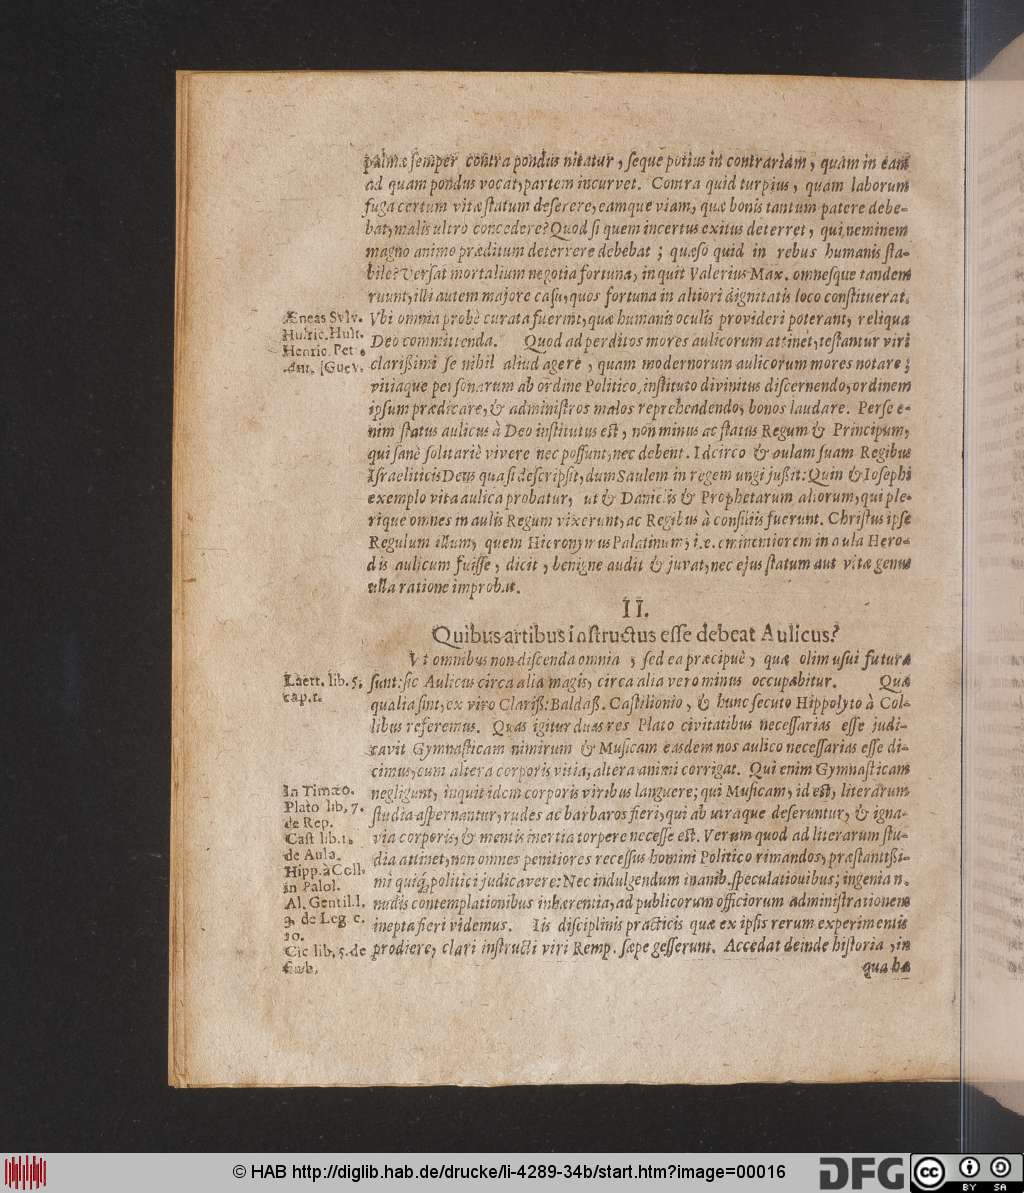 palmæ semper contra pondus nitatur, seque potius in contrariam, quàm in eam
ad quam pondus vocat, partem incurvet. Contra quid turpius, quam laborum
fuga certum vitæ statum deserere, eamque viam, quæ bonis tantum patere debe-
bat, malis ultro concedere? Quod si quem incertus exitus deterret, qui neminem
magno animo præditum deterrere debebat; quæso quid in rebus humanis sta-
bile? Versat mortalium negotia fortuna, inquit Valerius Max. omnesque tandem
ruunt, illi autem majore casu, quos fortuna in altiori dignitatis loco constituerat.
Vbi omnia probè curata fuerint, quæ humanis oculis provideri poterant, reliqua
Deo committenda. Quod ad perditos mores aulicorum attinet, testantur viri
clarißimi se nihil aliud agere, quam modernorum aulicorum mores notare;
vitiaque personarum ab ordine Politico, instituto divinitus discernendo, ordinem
ipsum prædicare, & administros malos reprehendendo, bonos laudare. Per se e-
nim status aulicus à Deo institutus est, non minus ac status Regum & Principum,
qui sanè solitariè vivere nec possunt, nec debent. Idcirco & aulam suam Regibus
Israeliticis Deus quasi descripsit, dum Saulem in regem ungi jußit: Quin & Iosephi
exemplo vita aulica probatur, ut & Danielis & Prophetarum aliorum, qui ple-
rique omnes in aulis Regum vixerunt, ac Regibus à consiliis fuerunt. Christus ipse
Regulum illum, quem Hieronymus Palatinum, i.e. eminentiorem in aula Hero-
dis aulicum fuisse, dicit, benigne audit & juvat, nec ejus statum aut vitæ genus
ulla ratione improbat.
Æneas Sylv.
Hulric. Hutt.
Henric. Pet-
Guev.
II.
Quibus artibus instructus esse debeat Aulicus?
Vt omnibus non discenda omnia, sed ea præcipuè, quæ olim usui futura
sunt: sic Aulicus circa alia magis, circa alia vero minus occupabitur. Quæ
qualia sint, ex viro Clariß: Baldaß. Castilionio, & hunc secuto Hippolyto à Col-
libus referemus. Quas igitur duas res Plato civitatibus necessarias esse judi-
cavit Gymnasticam nimirum & Musicam easdem nos aulico necessarias esse di-
cimus, cum altera corporis vitia, altera animi corrigat. Qui enim Gymnasticam
negligunt, inquit idem corporis viribus languere; qui Musicam, id est, literarum
studia aspernantur, rudes ac barbaros fieri, qui ab utraque deseruntur, & igna-
via corporis, & mentis inertia torpere necesse est. Verum quod ad literarum stu-
dia attinet, non omnes penitiores recessus homini Politico rimandos, præstantißi-
mi quiq; politici judicavere: Nec indulgendum inanib. speculationibus; ingenia n.
nudis contemplationibus inhærentia, ad publicorum officiorum administrationem
inepta fieri videmus. Iis disciplinis practicis quæ ex ipsis rerum experimentis
prodiere, clari instructi viri Remp. sæpe gesserunt. Accedat deinde historia, in
qua ba
Laert. lib. 5.
cap. 1.
In Timæo.
Plato lib. 7.
de Rep.
Cast lib. 1.
de Aula.
Hipp. à Coll.
in Palol.
Al. Gentil. l.
3. de Leg c.
10.
Cic lib. 5. de
© HAB http://diglib.hab.de/drucke/li-4289-34b/start.htm?image=00016
DFG
cc BY SA